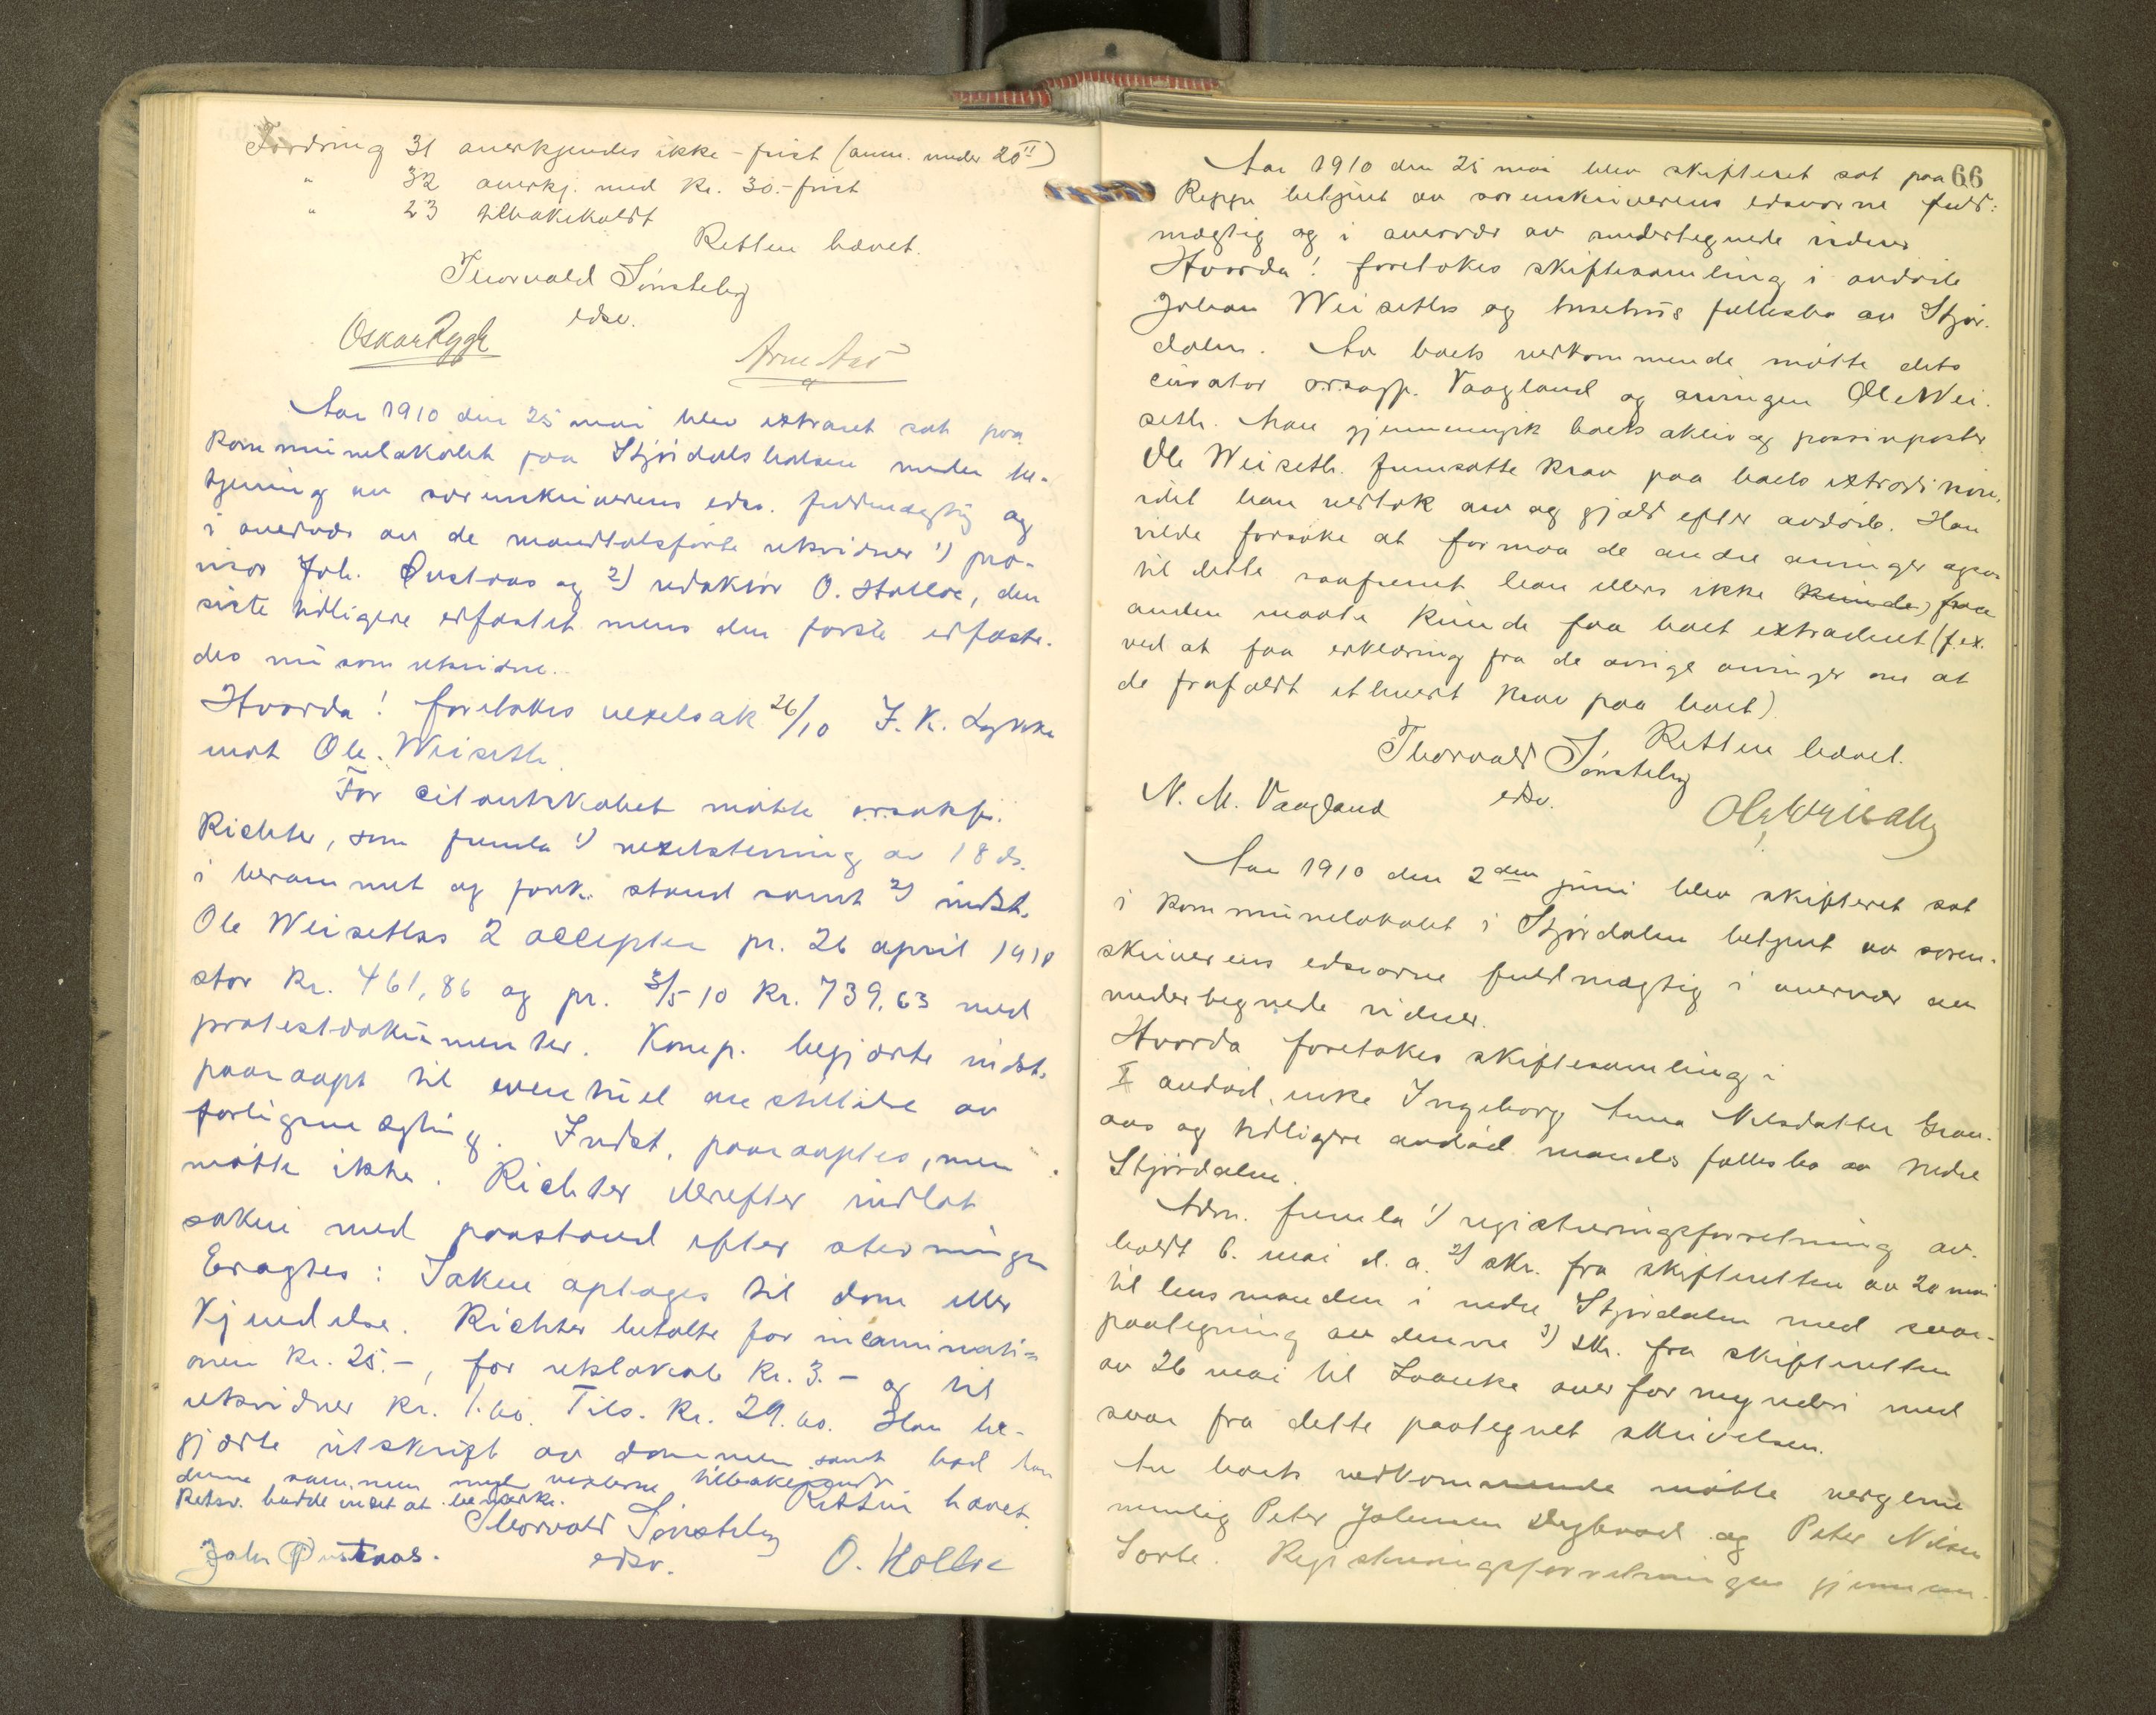 Fordring 31 anerkjendes ikke - frist (anm. under 20¹¹)
" 32 anerkj. med Kr. 30.- frist
" 23 tilbakekaldt
Retten hævet.
Thorvald Sønsteby
edsv.
Oskar Rygg Arne Aas
Aar 1910 den 25 mai blev extraret sat paa
kommunelokalet paa Stjørdalshalsen under be-
tjening av sorenskriverens edsv. fuldmægtig og
i overvær av de mandtalsførte retsvidner 1) pro-
visor Joh. Øustaas og 2) redaktør O. Holloe, den
siste tidligere edfæstet mens den første edfæste-
des nu som retsvidne.
Hvorda! foretokes vexelsak 26/10 F. K. Lykke
mot Ole Weiseth.
For citantskabet møtte o.r.sakf.
Richter, som freml. 1) vexelstevning av 18 ds.
i berammet og fork. stand samt 2) indst.
Ole Weiseths 2 accepter pr. 26 april 1910
stor kr. 461,86 og pr. 3/5 10 kr. 739,63 med
protestdokumenter. Komp. begjærte indst.
paaraapt til eventuel anstillelse av
forligsmægling. Indst. paaraaptes, men
møtte ikke. Richter derefter indlot
saken med paastand efter stevningen
Eragtes: Saken optages til dom eller
Kjendelse. Richter betalte for incaminati-
onen Kr. 25.-, for retslokale Kr. 3.- og til
retsvidner Kr. 1.60. Tils. Kr. 29.60. Han be-
gjærte utskrift av dommen samt bad han
denne sammen med vexlerne tilbakesendt
Retsv. hadde intet at bemærke. Retten hævet.
Thorvald Sønsteby
edsv.
Joh Øustaas. O. Holloe
66
Aar 1910 den 25 mai blev skifteret sat paa
Reppe betjent av sorenskriverens edsvorne fuld-
mægtig og i overvær av undertegnede vidner
Hvorda! foretokes skiftesamling i avdøde
Johan Weiseths og hustrus fællesbo av Stjør-
dalen. For boets vedkommende møtte dets
curator o.r.sagf. Vaagland og arvingen Ole Wei-
seth. Man gjennemgik boets aktiv og passivposter
Ole Weiseth fremsatte krav paa boets extradition,
idet han vedtok arv og gjæld efter avdøde. Han
vilde forsøke at formaa de andre arvinger ogsaa
til dette saafremt han ellers ikke kunde) paa
anden maate kunde faa boet extraderet (f.ex.
ved at faa erklæring fra de øvrige arvinger om at
de frafaldt ethvert krav paa boet).
Retten hævet.
Thorvald Sønsteby
edsv.
N. M. Vaagland Ole Weiseth
Aar 1910 den 2den juni blev skifteret sat
i kommunelokalet i Stjørdalen betjent av soren-
skriverens edsvorne fuldmægtig i overvær av
undertegnede vidner.
Hvorda foretokes skiftesamling i
I avdød. enke Ingeborg Anna Nilsdatter Gran-
aas og tidligere avdød mands fællesbo av nedre
Stjørdalen.
Adm. freml. 1) registreringsforretning av-
holdt 6. mai d. a. 2) skr. fra skifteretten av 20 mai
til lensmanden i nedre Stjørdalen med svar-
paategning av denne 3) skr. fra skifteretten
av 26 mai til Laanke overformynderi med
svar fra dette paategnet skrivelsen.
For boets vedkommende møtte vergerne
nemlig Peter Johnsen og Peter Nilsen
Registreringsforretningen gjennem-